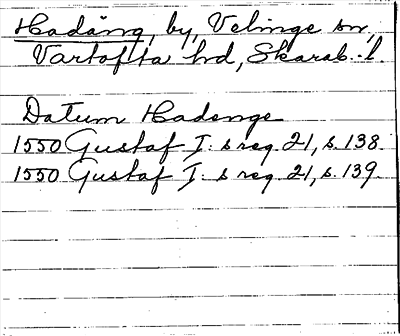 Hadäng, by, Velinge sn,
Vartofta hd, Skarab. l.
Datum Hadenge
1550 Gustaf I: s reg. 21, s. 138.
1550 Gustaf I: s reg. 21, s. 139.